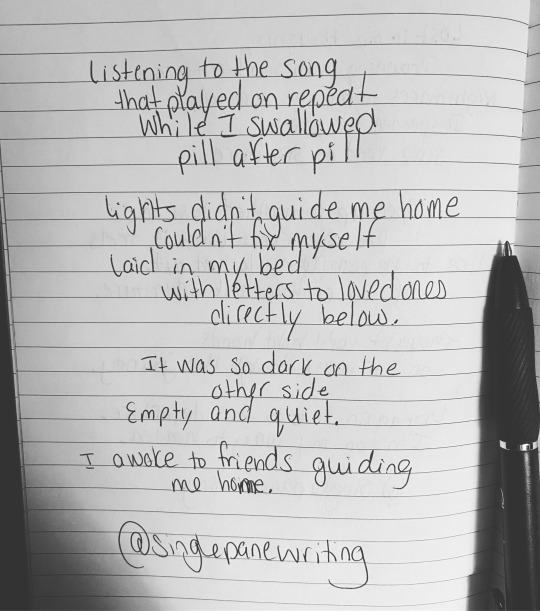 listening to the song
that played on repeat
while I swallowed
pill after pill
lights didn't guide me home
couldn't fix myself
laid in my bed
with letters to loved ones
directly below.
It was so dark on the
other side
Empty and quiet.
I awoke to friends guiding
me home.
@singlepanewriting